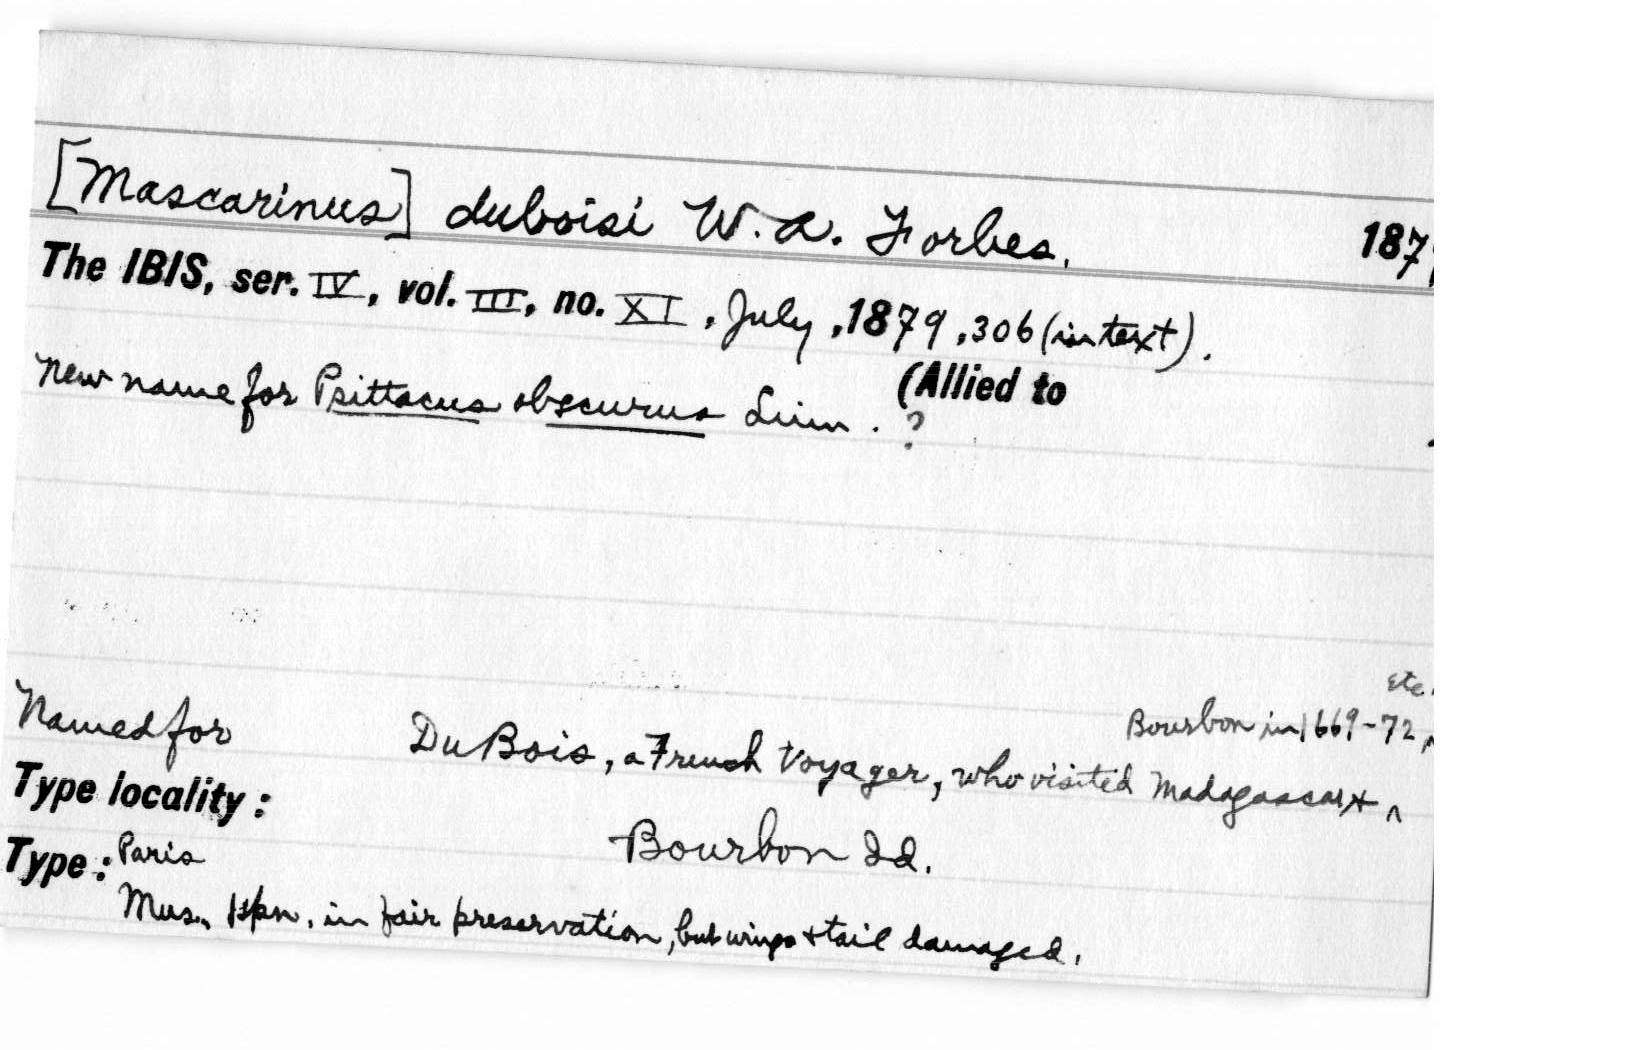 [Mascarinus] duboisi W. A. Forbes. 187
The IBIS, ser. IV, vol. III, no. XI, July, 1879, 306 (in text).
New name for Psittacus obscurus Linn. ? (Allied to
etc.
Bourbon in 1669-72 ^
Named for DuBois, a French Voyager, who visited Madagascar + ^
Type locality: Bourbon Id.
Type: Paris
Mus., 1 spn. in fair preservation, but wings + tail damaged.